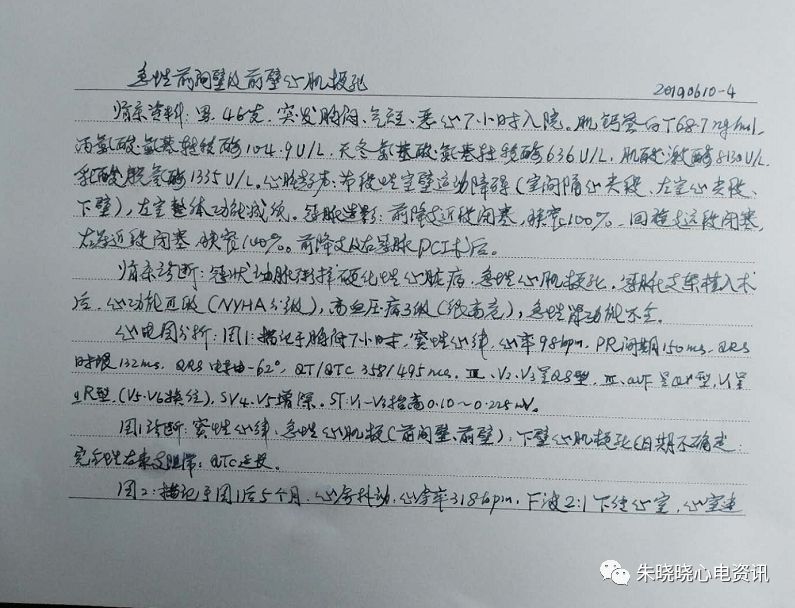 急性前间壁及前壁心肌梗死
20190610-4
临床资料: 男, 46岁, 突发胸闷、气短、恶心7小时入院。肌钙蛋白T 68.7 ng/ml,
丙氨酸·氨基转移酶 104.9 U/L, 天冬氨基酸·氨基转移酶 636 U/L, 肌酸激酶 8130 U/L,
乳酸脱氢酶 1335 U/L。心脏超声: 节段性室壁运动障碍(室间隔心尖段、左室心尖段、
下壁), 左室整体功能减低。冠脉造影: 前降支近段闭塞, 狭窄100%, 回旋支远段闭塞,
右冠近段闭塞, 狭窄100%。前降支及右冠脉PCI术后。
临床诊断: 冠状动脉粥样硬化性心脏病, 急性心肌梗死, 冠脉支架植入术
后, 心功能Ⅲ级(NYHA分级), 高血压病3级(很高危), 急性肾功能不全。
心电图分析: 图1: 描记于胸闷7小时, 窦性心律, 心率98bpm, PR间期150ms, QRS
时限132ms, QRS电轴-62°, QT/QTC 358/495ms, Ⅲ、V2、V3呈QS型, aVF呈型, V1呈
qR型, (V5、V6接续), SV4、V5增深。ST: V1~V3抬高0.10~0.225mV。
图1诊断: 窦性心律, 急性心肌梗(前间壁、前壁), 下壁心肌梗死(日期不确定
完全性右束支阻滞; QTC延长。
图2: 描记于图1后5个月, 心房扑动, 心房率318bpm, F波2:1下传心室, 心室速
朱晓晓心电资讯